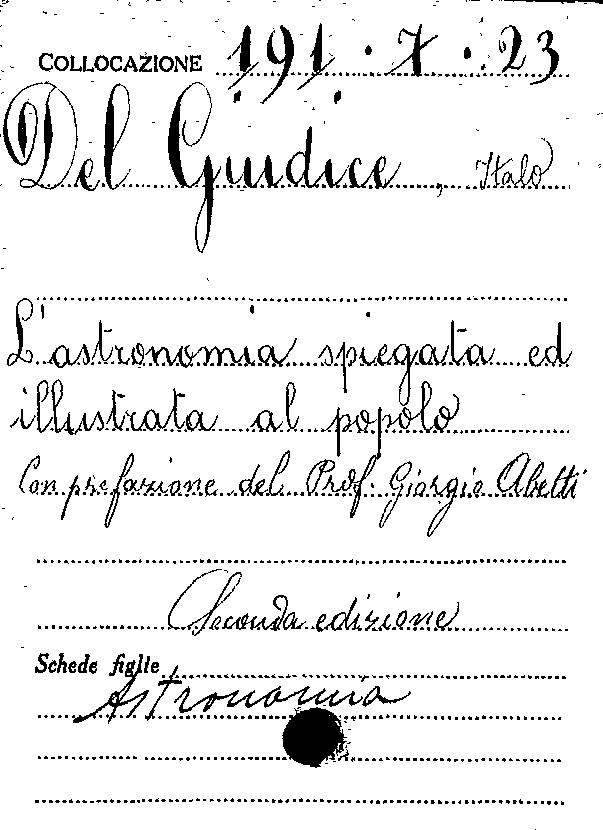 COLLOCAZIONE 191.7.23
Del Giudice, Italo
L'astronomia spiegata ed
illustrata al popolo
Con prefazione del Prof. Giorgio Abetti
Seconda edizione
Schede figlie
Astronomia